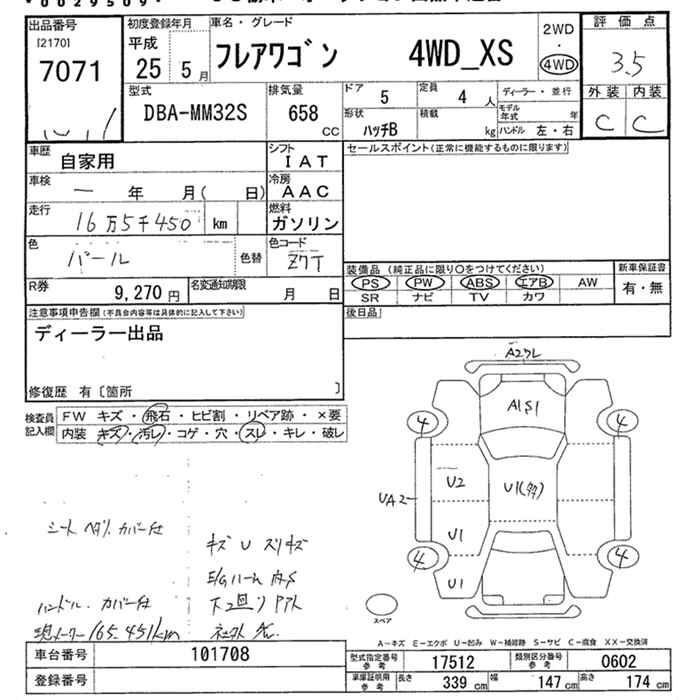 *0029509*
出品番号
[2170]
7071
初度登録年月
平成
25 5月
車名・グレード
フレアワゴン 4WD_XS
2WD
・
4WD
評価点
3.5
外装 内装
C C
型式
DBA-MM32S
排気量
658 CC
ドア 5
定員 4 人
ディーラー・並行
形状 ハッチB
積載 kg
モデル年式 年
ハンドル 左・右
車歴 自家用
シフト IAT
車検 ー 年 月( 日)
冷房 AAC
走行 16万5千450 km
燃料 ガソリン
色 パール
色替
色コード Z7T
R券 9,270円
名変通知期限 月 日
セールスポイント(正常に機能するものに限ります)
装備品(純正品に限り〇をつけてください)
PS PW ABS エアB AW
SR ナビ TV カワ
新車保証書
有・無
後日品
注意事項申告欄(不具合内容等は具体的に記入して下さい)
ディーラー出品
修復歴 有〔箇所 〕
検査員記入欄
FW キズ・飛石・ヒビ割・リペア跡・×要
内装 キズ・汚レ・コゲ・穴・スレ・キレ・破レ
A2クレ
A1S1
4 4
U2
U1(多)
UA2
U1
4 4
U1
スペア
シート ヘタリ カバー付
キズ U スリキズ
E/Gルーム 内S
ハンドル・カバー付
下回り サアト
現メーター165,451km
A-キズ E-エクボ U-凹み W-補修跡 S-サビ C-腐食 XX-交換済
車台番号 101708
登録番号
型式指定番号 参考 17512
類別区分番号 参考 0602
車庫証明用 参考 長さ 339cm 幅 147cm 高さ 174cm